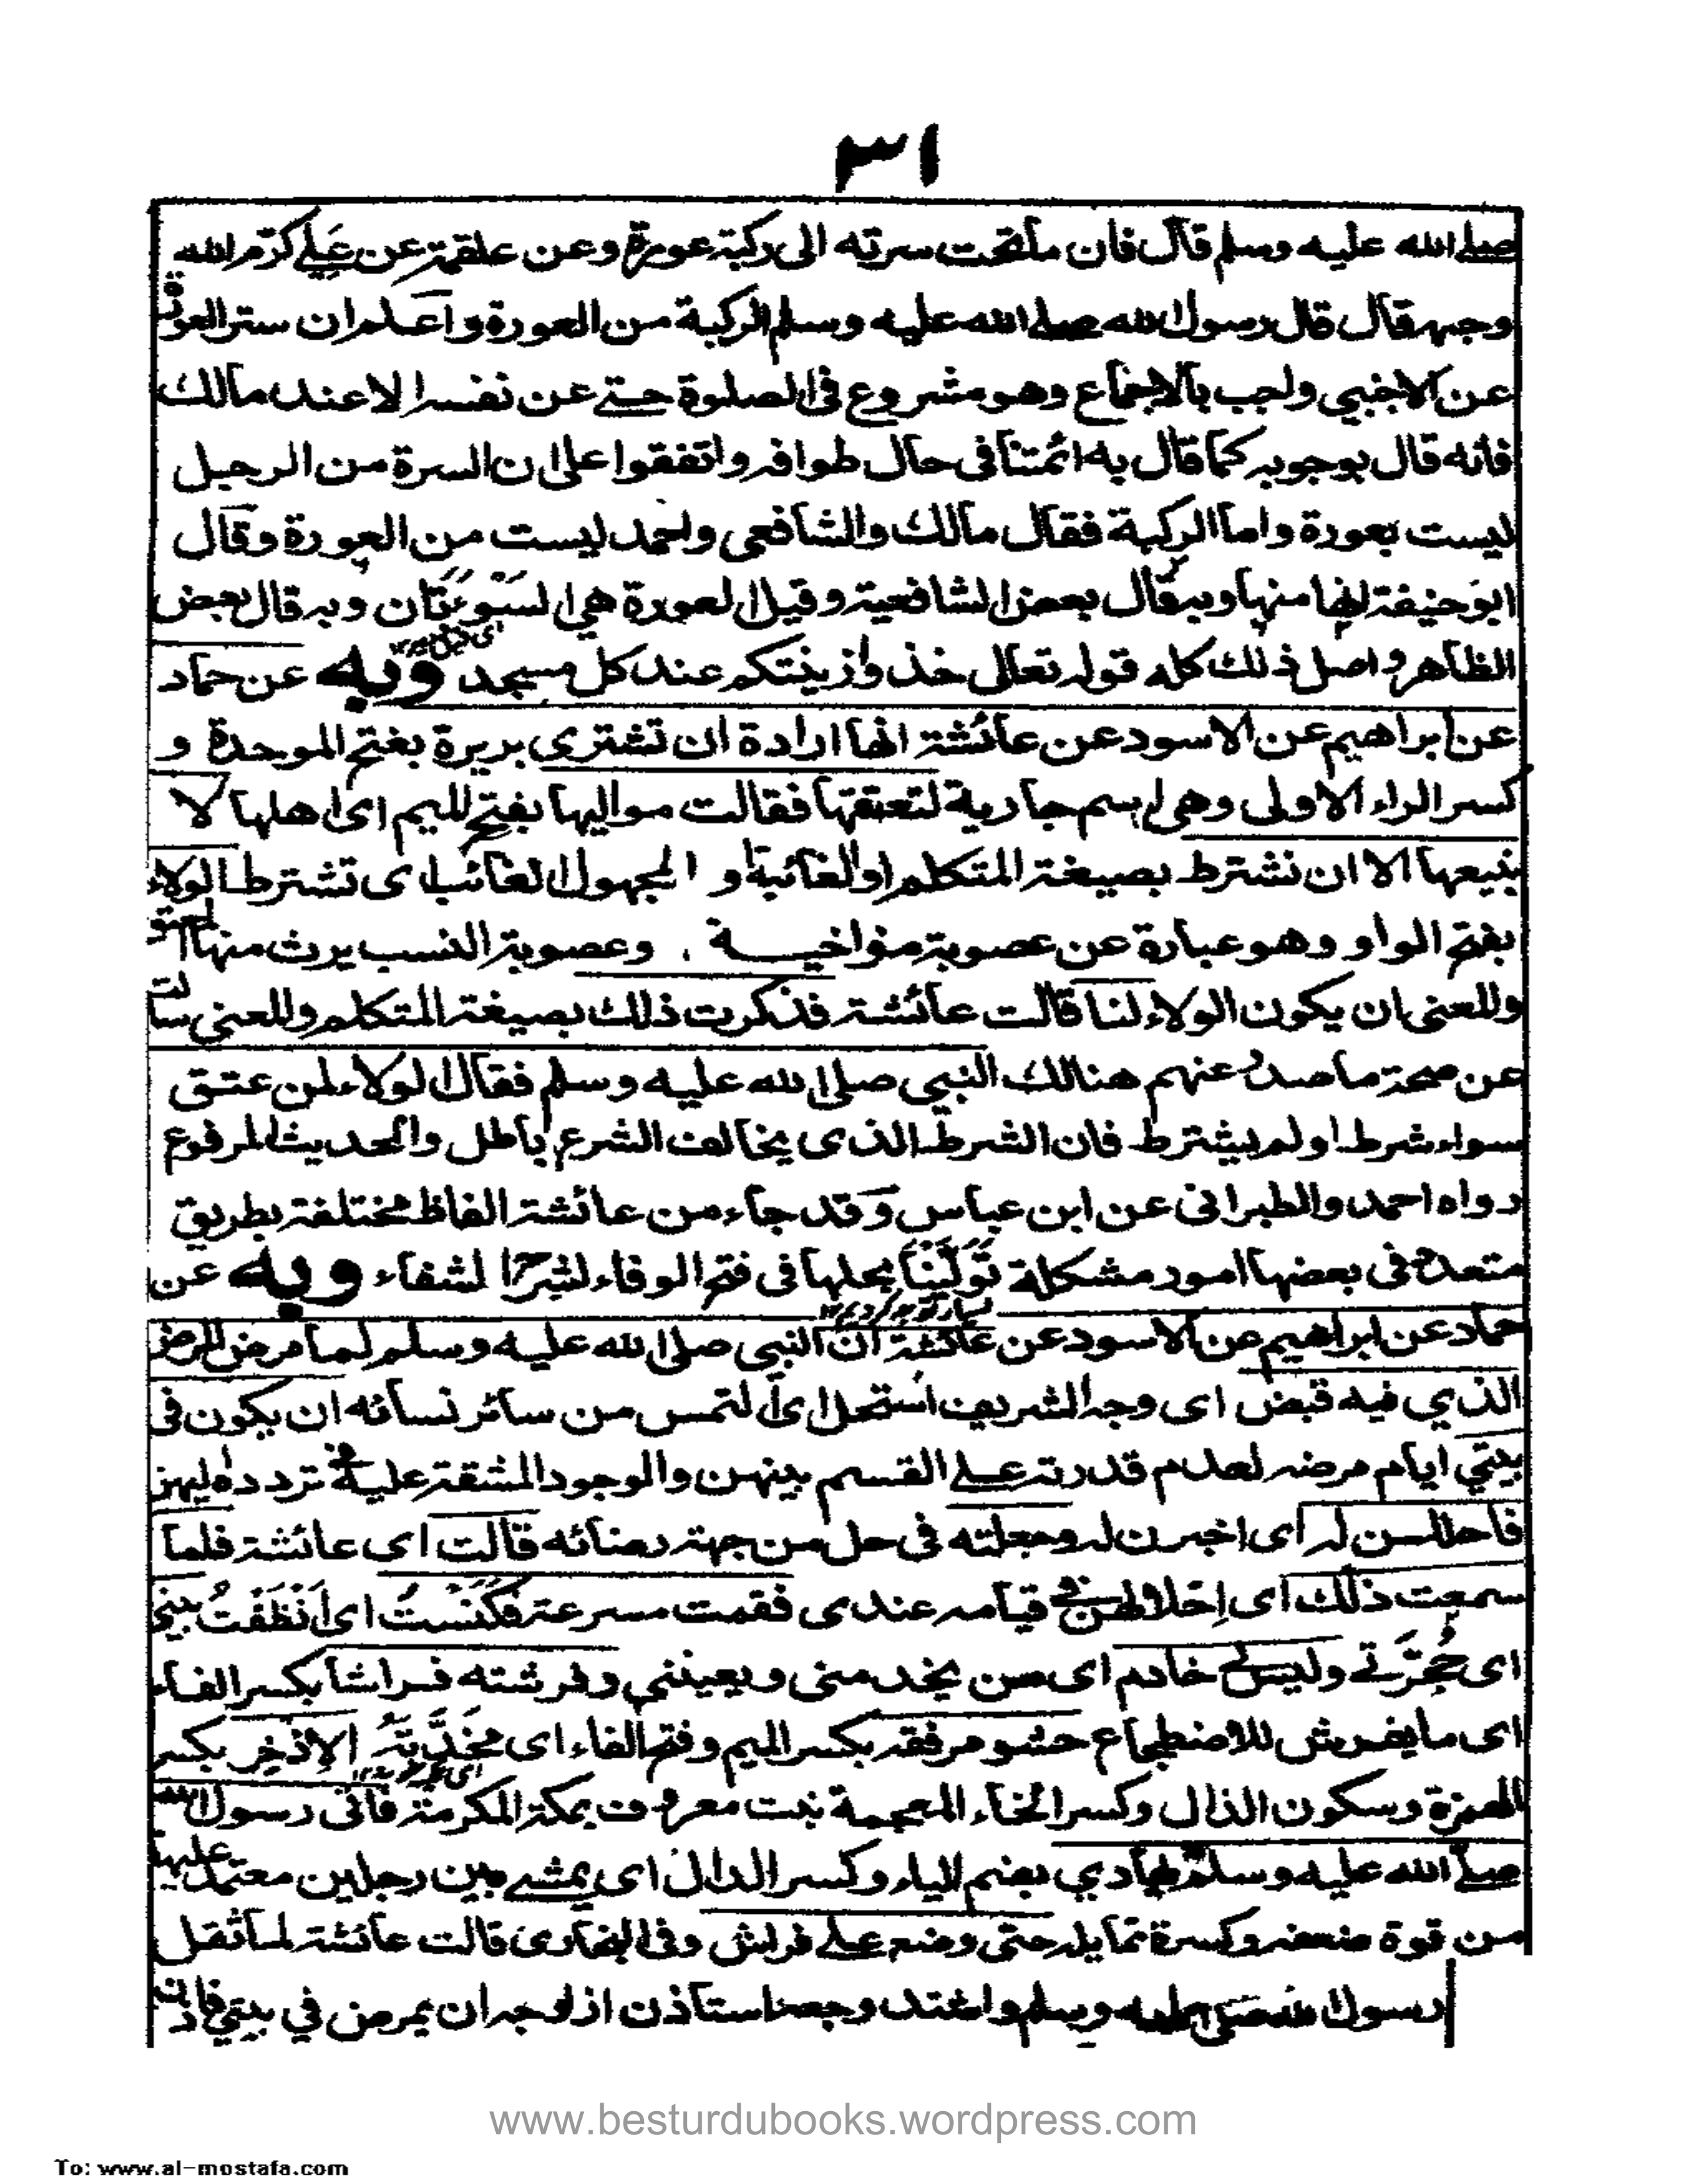 ٣١
صلے الله عليه وسلم قال فان ما تحت سرته الى ركبته عورة وعن علقمة عن عَلِے كرّم الله
وجهه قال قال رسول الله صلے الله عليه وسلم الركبة من العورة واعلم ان ستر العورة
عن الاجنبي واجب بالاجماع وهو مشروع فى الصلوة حتے عن نفسه الا عند مالك
فانه قال بوجوبه كما قال به ائمتنا فى حال طوافه واتفقوا على ان السرة من الرجل
ليست بعورة واما الركبة فقال مالك والشافعي واحمد ليست من العورة وقال
ابو حنيفة انها منها وبه قال بعض الشافعية وقيل العورة هي السَّوءَتان وبه قال بعض
الظاهر واصل ذلك كله قوله تعالى خذوا زينتكم عند كل مسجد وبه عن حماد
عن ابراهيم عن الاسود عن عائشة انها ارادة ان تشترى بريرة بفتح الموحدة و
كسر الراء الاولى وهى اسم جارية لتعتقها فقالت مواليها بفتح الميم اى اهلها لا
نبيعها الا ان نشترط بصيغة المتكلم او الغائبة او المجهول الغائب اى تشترط الولاء
بفتح الواو وهو عبارة عن عصوبة متراخية وعصوبة النسب يرث منها المعتق
والمعنى ان يكون الولاء لنا قالت عائشة فذكرت ذلك بصيغة المتكلم والمعنى سألت
عن صحة ما صدر عنهم هنالك النبي صلى الله عليه وسلم فقال الولاء لمن عتق
سواء شرط او لم يشترط فان الشرط الذى يخالف الشرع باطل والحديث المرفوع
رواه احمد والطبرانى عن ابن عباس وقد جاء من عائشة الفاظ مختلفة بطريق
متعددة فى بعضها امور مشكلة تَوَلَّيْنَا بحلها فى فتح الوفاء لشرح الشفاء وبه عن
حماد عن ابراهيم عن الاسود عن عائشة ان النبي صلى الله عليه وسلم لما مرض المرض
الذي فيه قبض اى وجه الشريف استحل اى التمس من سائر نسائه ان يكون فى
بيتي ايام مرضه لعدم قدرته علے القسم بينهن والوجود المشقة عليه فى تردده اليهن
فاحللن له اى اخبرن له وجعلته فى حل من جهة رضائه قالت اى عائشة فلما
سمعت ذلك اى اِحلالهن فى قيامه عندى فقمت مسرعة فكَنَسْتُ اى نَظَفْتُ بيتي
اى حُجْرَتے وليس لے خادم اى من يخدمنى ويعيننى وفرشته فراشا بكسر الفاء
اى ما يفرش للاضطجاع حشو مرفقه بكسر الميم وفتح الفاء اى مِخَدَّتُهُ الاِذْخِر بكسر
الهمزة وسكون الذال وكسر الخاء المعجمة نبت معروف بمكة المكرمة فاتى رسول الله
صلے الله عليه وسلم يهادي بضم الياء وكسر الدال اى يمشے بين رجلين معتمدا عليهما
من قوة ضعفه وكسرة تمايله حتى وضع علے فراش وفى البخارى قالت عائشة لما ثقل
رسول الله صلى الله عليه وسلم واشتد وجعه استاذن ازواجه ان يمرض في بيتي فاذن
www.besturdubooks.wordpress.com
To: www.al-mostafa.com